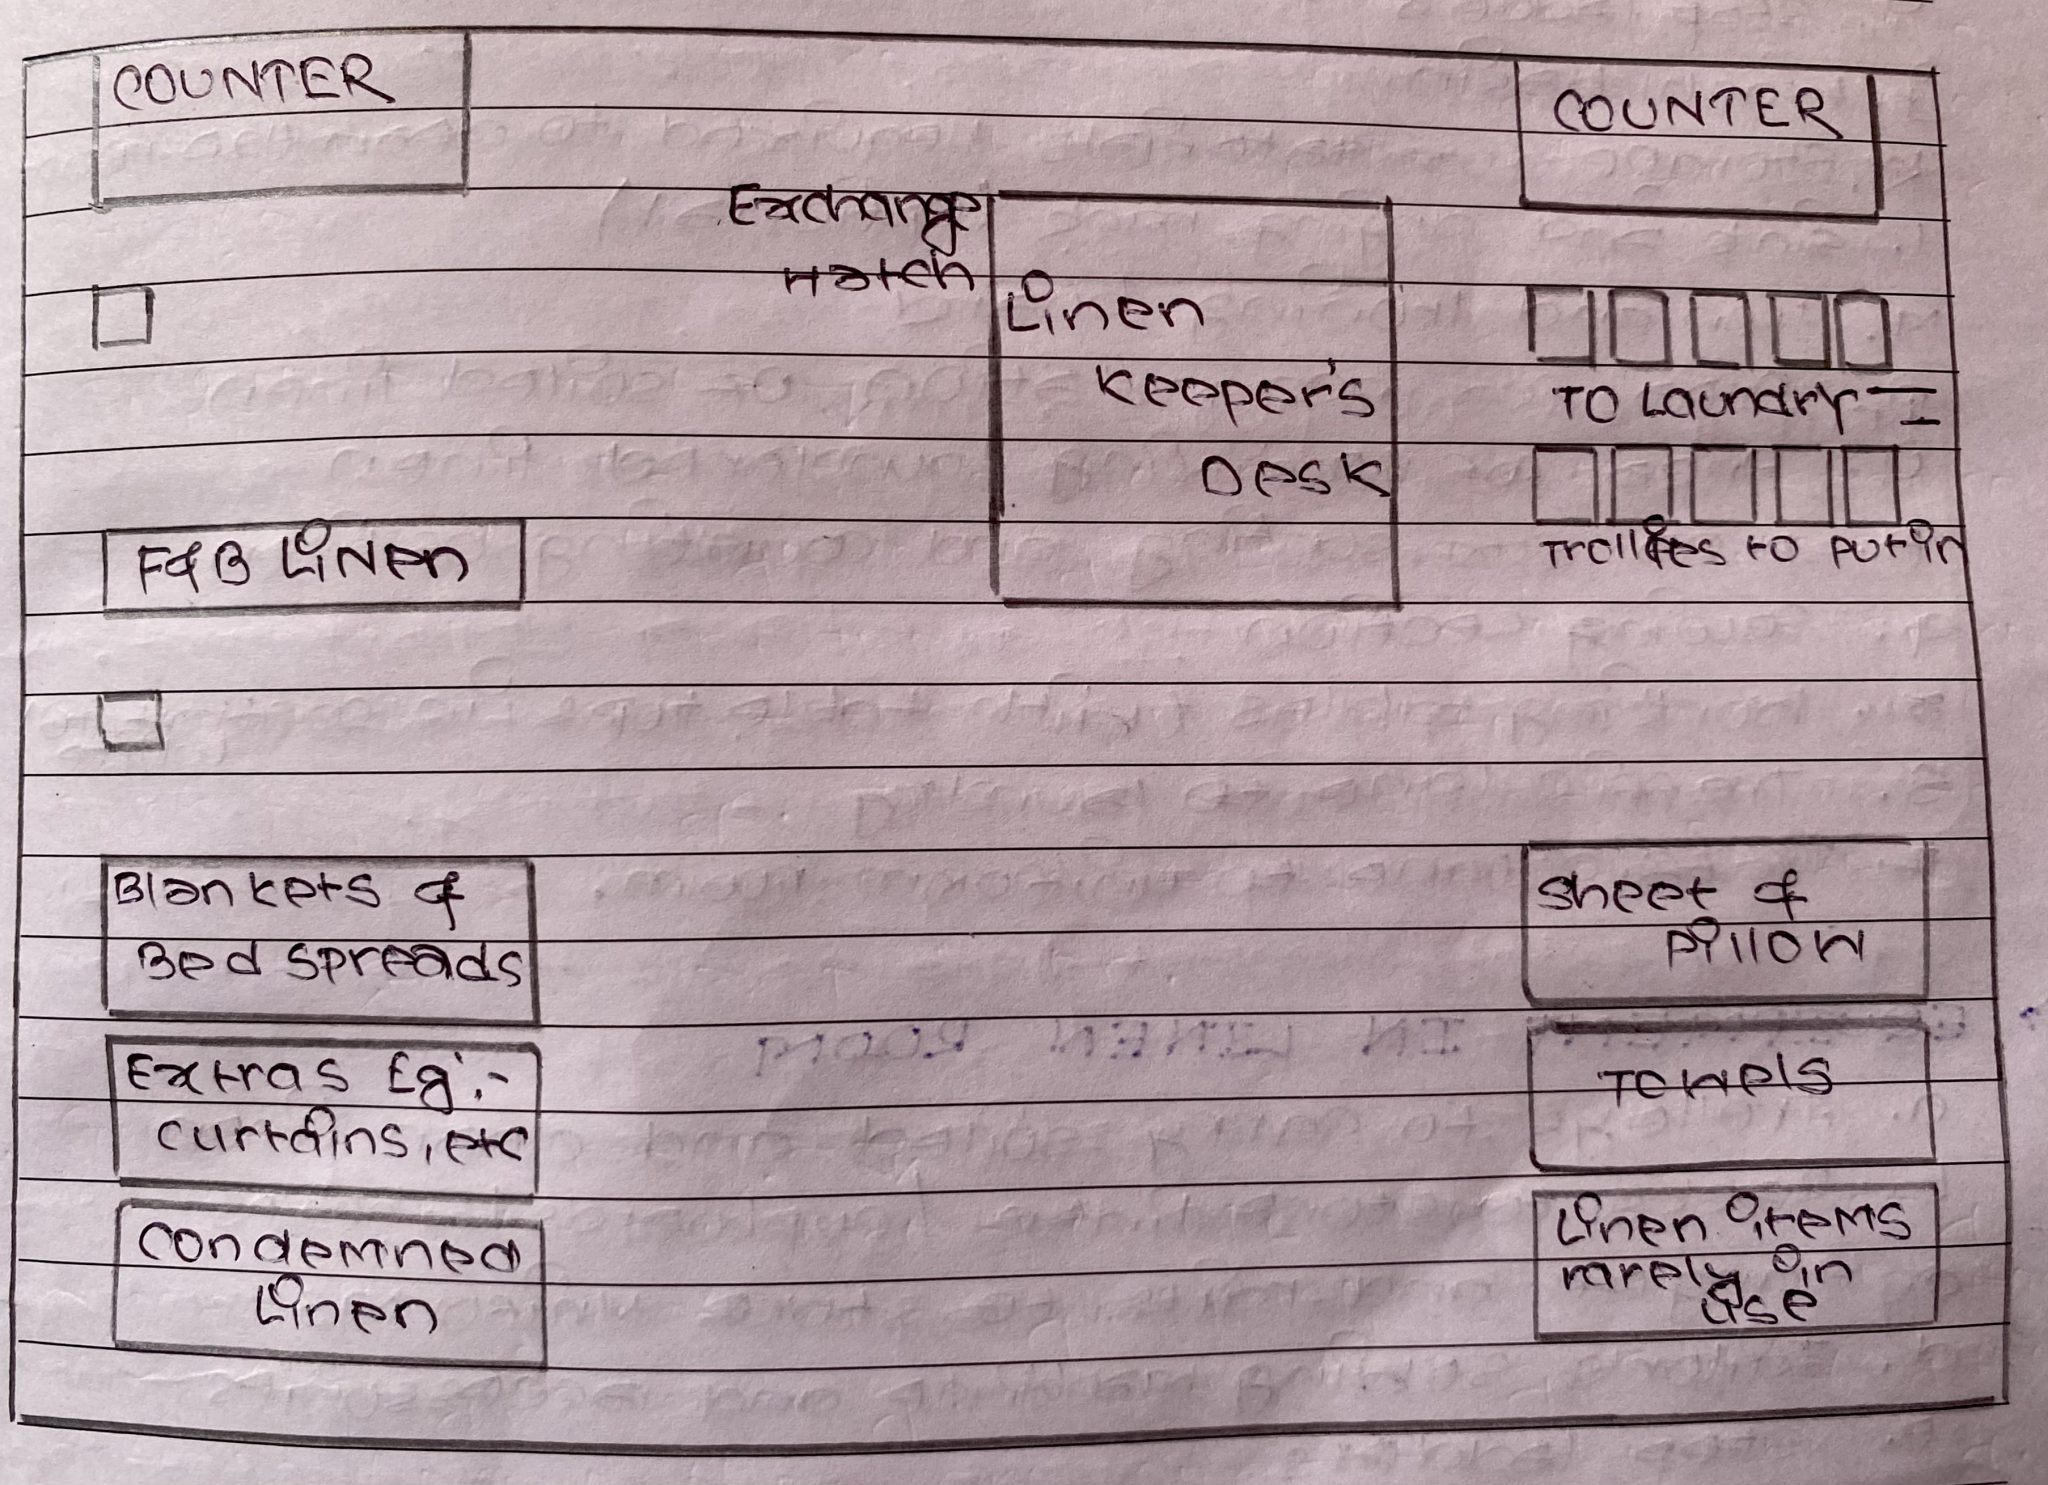 COUNTER
COUNTER
Exchange
Hatch
Linen
Keeper's
Desk
TO Laundry
F&B Linen
Trollies to put in
Blankets &
Bed spreads
Sheet &
Pillow
Extras Eg:-
curtains, etc
Towels
Condemned
Linen
Linen items
rarely in
use